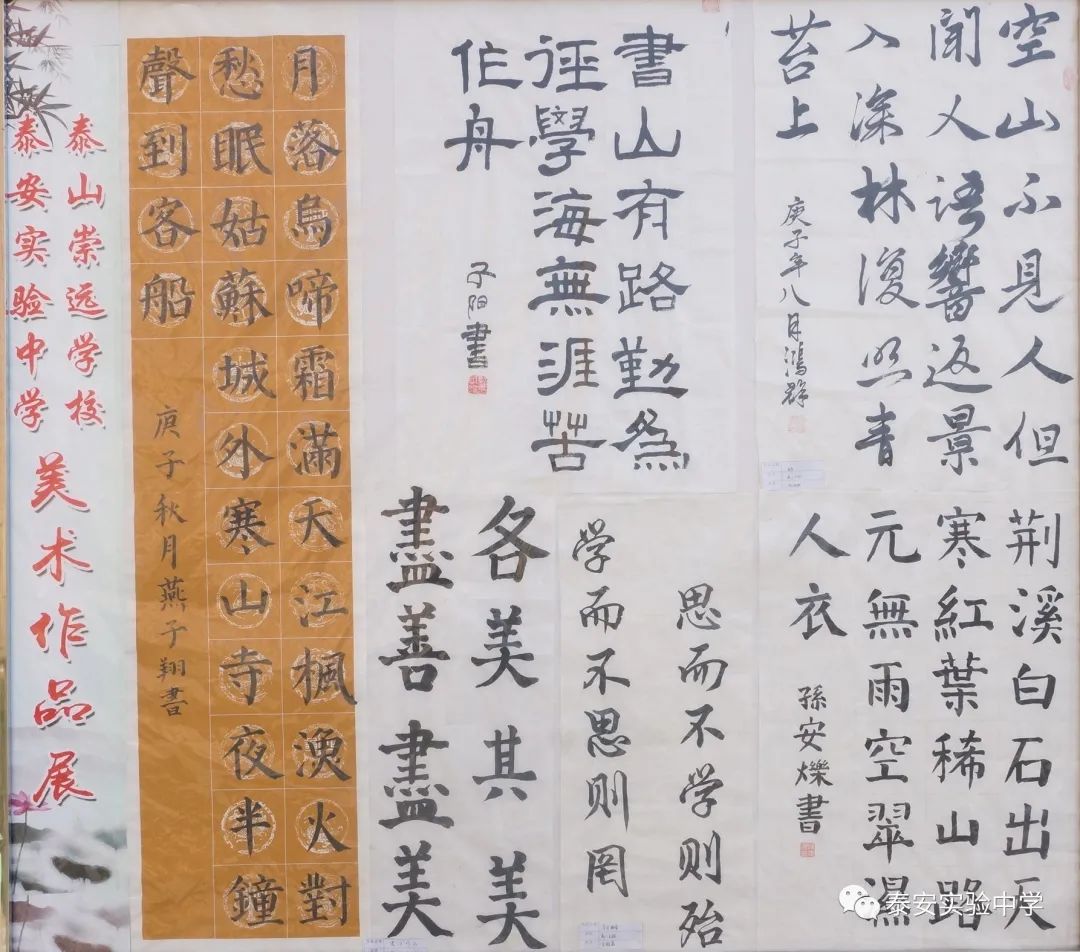 泰山崇远学校
泰安实验中学
美术作品展
月落烏啼霜滿天江楓漁火對
愁眠姑蘇城外寒山寺夜半鐘
聲到客船
庚子秋月燕子翔書
書山有路勤為
徑學海無涯苦
作舟
子阳書
空山不見人但
聞人語響返景
入深林復照青
苔上
庚子年八月鴻群
各美其美
盡善盡美
思而不学则殆
学而不思则罔
荆溪白石出天
寒紅葉稀山路
元無雨空翠濕
人衣
孫安爍書
泰安实验中学